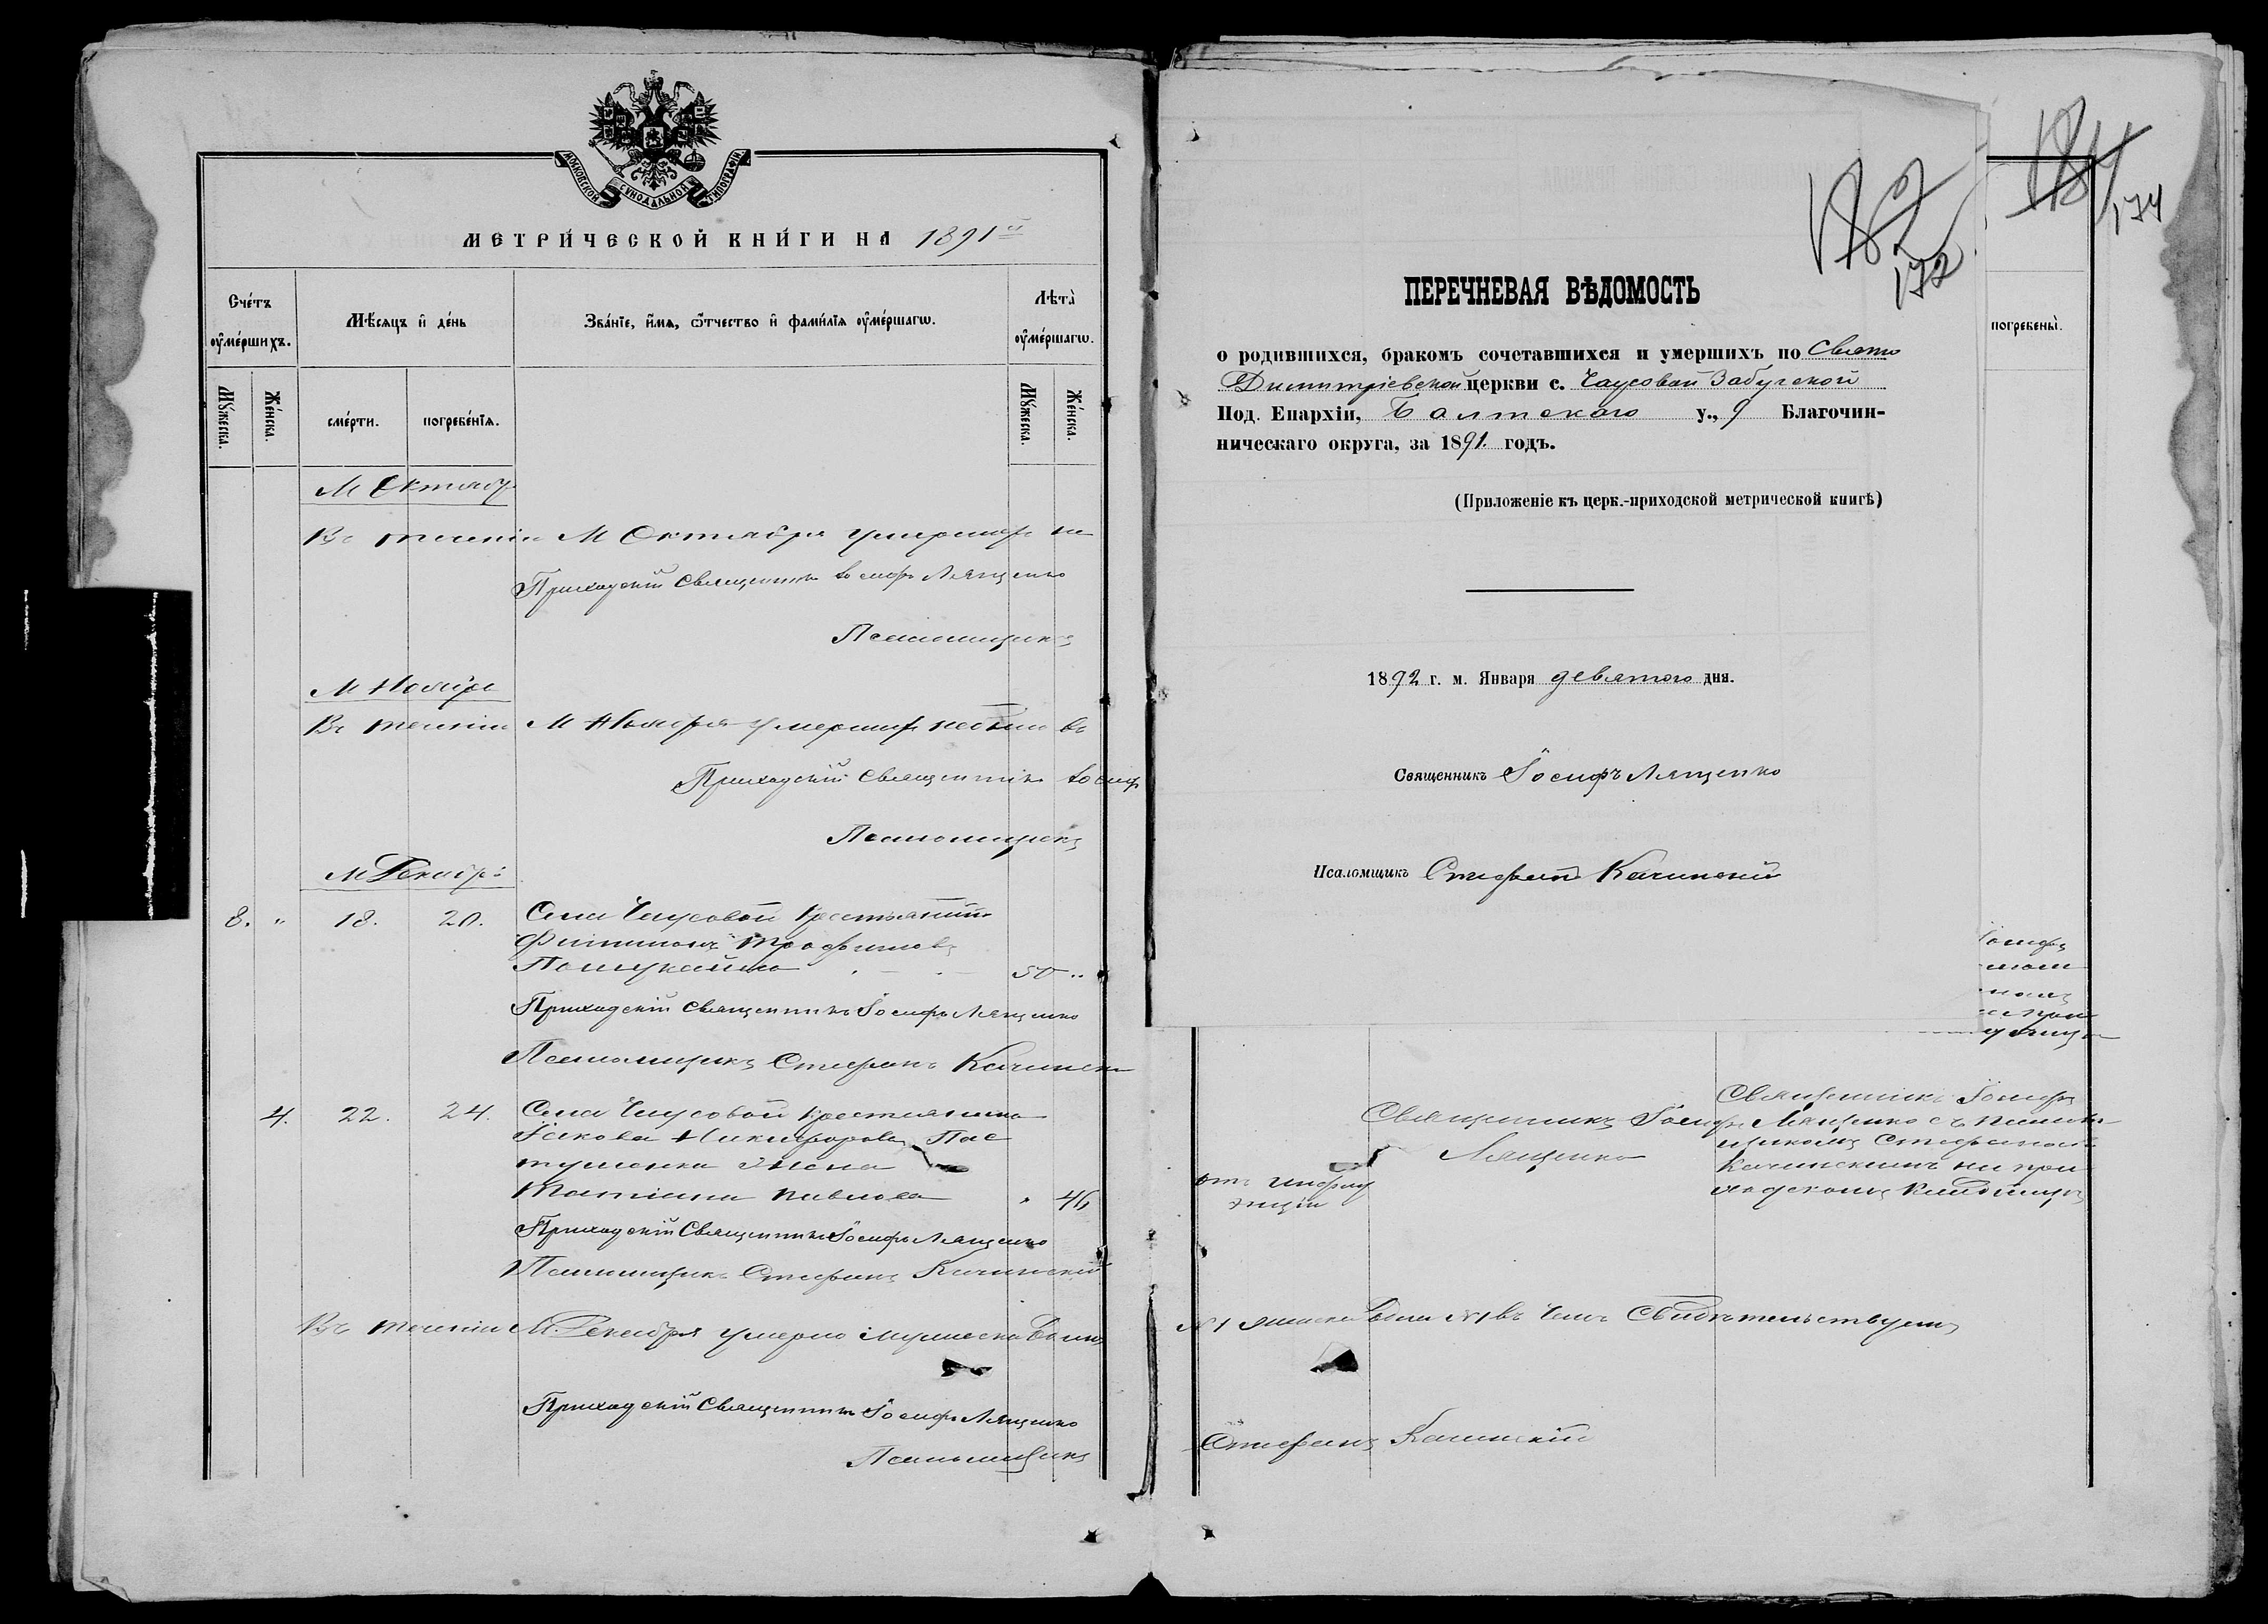 МОСКОВСКОЙ СѴНОДАЛЬНОЙ ТИПОГРАФІИ
МЕТРИ́ЧЕСКОЙ КНИ́ГИ НА 1891й
Сче́тъ оу҆ме́ршихъ.
Мѣ́сяцъ и҆ де́нь
Зва́нїе, и҆́мѧ, ѻ҆́тчество и҆ фами́лїѧ оу҆ме́ршагѡ.
Лѣта̀ оу҆ме́ршагѡ.
Мꙋ́жеска.
Же́нска.
сме́рти.
погребе́нїѧ.
Мꙋ́жеска.
Же́нска.
М Октябр
Въ теченіи М Октября умершихъ не
Приходскій Священникъ Іосифъ Лященко
Псаломщикъ
М Ноябрь
Въ теченіи М Ноября умершихъ небыло въ
Приходскій Священникъ Іосиф
Псаломщикъ
М Декабрь
8. " 18. 20. Села Чаусовой Крестьянинъ
Филимонъ Трофимовъ
50 "
Приходскій Священникъ Іосифъ Лященко
Псаломщикъ Стефанъ Качинск
4. 22. 24. Села Чаусовой Крестьянина
Іакова Никифорова Пас
тушенка Жена
Татіана Павлова " 46
Приходскій Священникъ Іосифъ Лященко
Псаломщикъ Стефанъ Качинскій
Въ теченіи М. Декабря умерло мужеска Пола
Приходскій Священникъ Іосифъ Лященко
Псаломщикъ
187
172
184
174
ПЕРЕЧНЕВАЯ ВѢДОМОСТЬ
о родившихся, бракомъ сочетавшихся и умершихъ по Свято
Димитріевской церкви с. Чаусовой Забугской
Под. Епархіи, Балтскаго у., 9 Благочин-
ническаго округа, за 1891 годъ.
(Приложеніе къ церк.-приходской метрической книгѣ)
1892 г. м. Января девятого дня.
Священникъ Іосифъ Лященко
Псаломщикъ Стефанъ Качинскій
погребены̀.
Священникъ Іосифъ
Лященко
Священникъ Іосифъ
Лященко съ Псалом
щикомъ Стефаномъ
Качинскимъ на при
ходскомъ Кладбищѣ
№ 1 женска Пола № 1 въ Чемъ Свидѣтельствуемъ
Стефанъ Качинскій